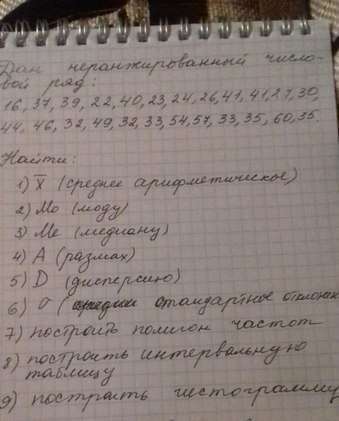 Дан неранжированный число-
вой ряд:
16, 37, 39, 22, 40, 23, 24, 26, 41, 41, 27, 30,
44, 46, 32, 49, 32, 33, 54, 57, 33, 35, 60, 35.
Найти:
1) X̅ (среднее арифметическое)
2) Мо (моду)
3) Ме (медиану)
4) A (размах)
5) D (дисперсию)
6) σ ( стандартное отклонен
7) построить полигон частот
8) построить интервальную
таблицу
9) построить гистограмму